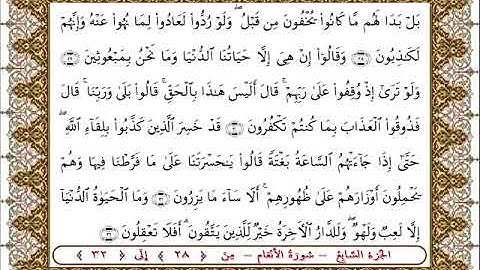 بَلْ بَدَا لَهُم مَّا كَانُوا۟ يُخْفُونَ مِن قَبْلُ ۖ وَلَوْ رُدُّوا۟ لَعَادُوا۟ لِمَا نُهُوا۟ عَنْهُ وَإِنَّهُمْ
لَكَـٰذِبُونَ ٢٨ وَقَالُوٓا۟ إِنْ هِىَ إِلَّا حَيَاتُنَا ٱلدُّنْيَا وَمَا نَحْنُ بِمَبْعُوثِينَ ٢٩
وَلَوْ تَرَىٰٓ إِذْ وُقِفُوا۟ عَلَىٰ رَبِّهِمْ ۚ قَالَ أَلَيْسَ هَـٰذَا بِٱلْحَقِّ ۚ قَالُوا۟ بَلَىٰ وَرَبِّنَا ۚ قَالَ
فَذُوقُوا۟ ٱلْعَذَابَ بِمَا كُنتُمْ تَكْفُرُونَ ٣٠ قَدْ خَسِرَ ٱلَّذِينَ كَذَّبُوا۟ بِلِقَآءِ ٱللَّهِ ۖ
حَتَّىٰٓ إِذَا جَآءَتْهُمُ ٱلسَّاعَةُ بَغْتَةً قَالُوا۟ يَـٰحَسْرَتَنَا عَلَىٰ مَا فَرَّطْنَا فِيهَا وَهُمْ
يَحْمِلُونَ أَوْزَارَهُمْ عَلَىٰ ظُهُورِهِمْ ۚ أَلَا سَآءَ مَا يَزِرُونَ ٣١ وَمَا ٱلْحَيَوٰةُ ٱلدُّنْيَآ
إِلَّا لَعِبٌ وَلَهْوٌ ۖ وَلَلدَّارُ ٱلْـَٔاخِرَةُ خَيْرٌ لِّلَّذِينَ يَتَّقُونَ ۗ أَفَلَا تَعْقِلُونَ ٣٢
الجزء السابع - سورة الأنعام - من ﴿ ٢٨ ﴾ إلى ﴿ ٣٢ ﴾